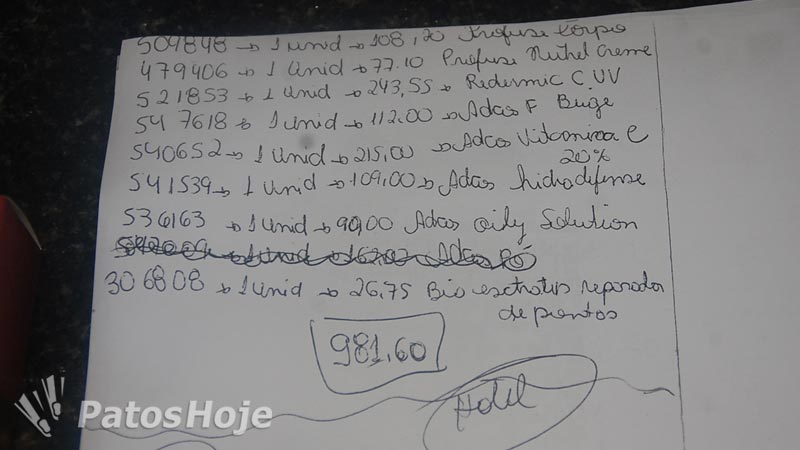 509848 → 1 unid → 108,20 Profuse Corpo
479406 → 1 Unid → 77.10 Profuse Nutrel Creme
521853 → 1 Unid → 243,55 → Redermic C UV
547618 → 1 unid → 112.00 → Adcos F Buge
540652 → 1 Unid → 215,00 → Adcos Vitamina C
20%
541539 → 1 Unid → 109,00 → Adcos hidradefense
536163 → 1 Unid → 90,00 Adcos oily Solution
306808 → 1 Unid → 26,75 Bio extratus reparador
de pontos
981,60
Hotel
PatosHoje